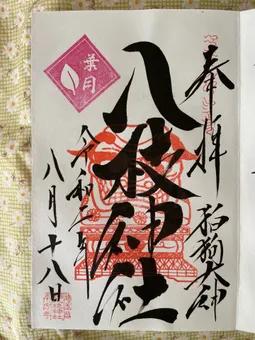 奉拝
狛狗大神
八枝神社
令和二年
八月十八日
葉月